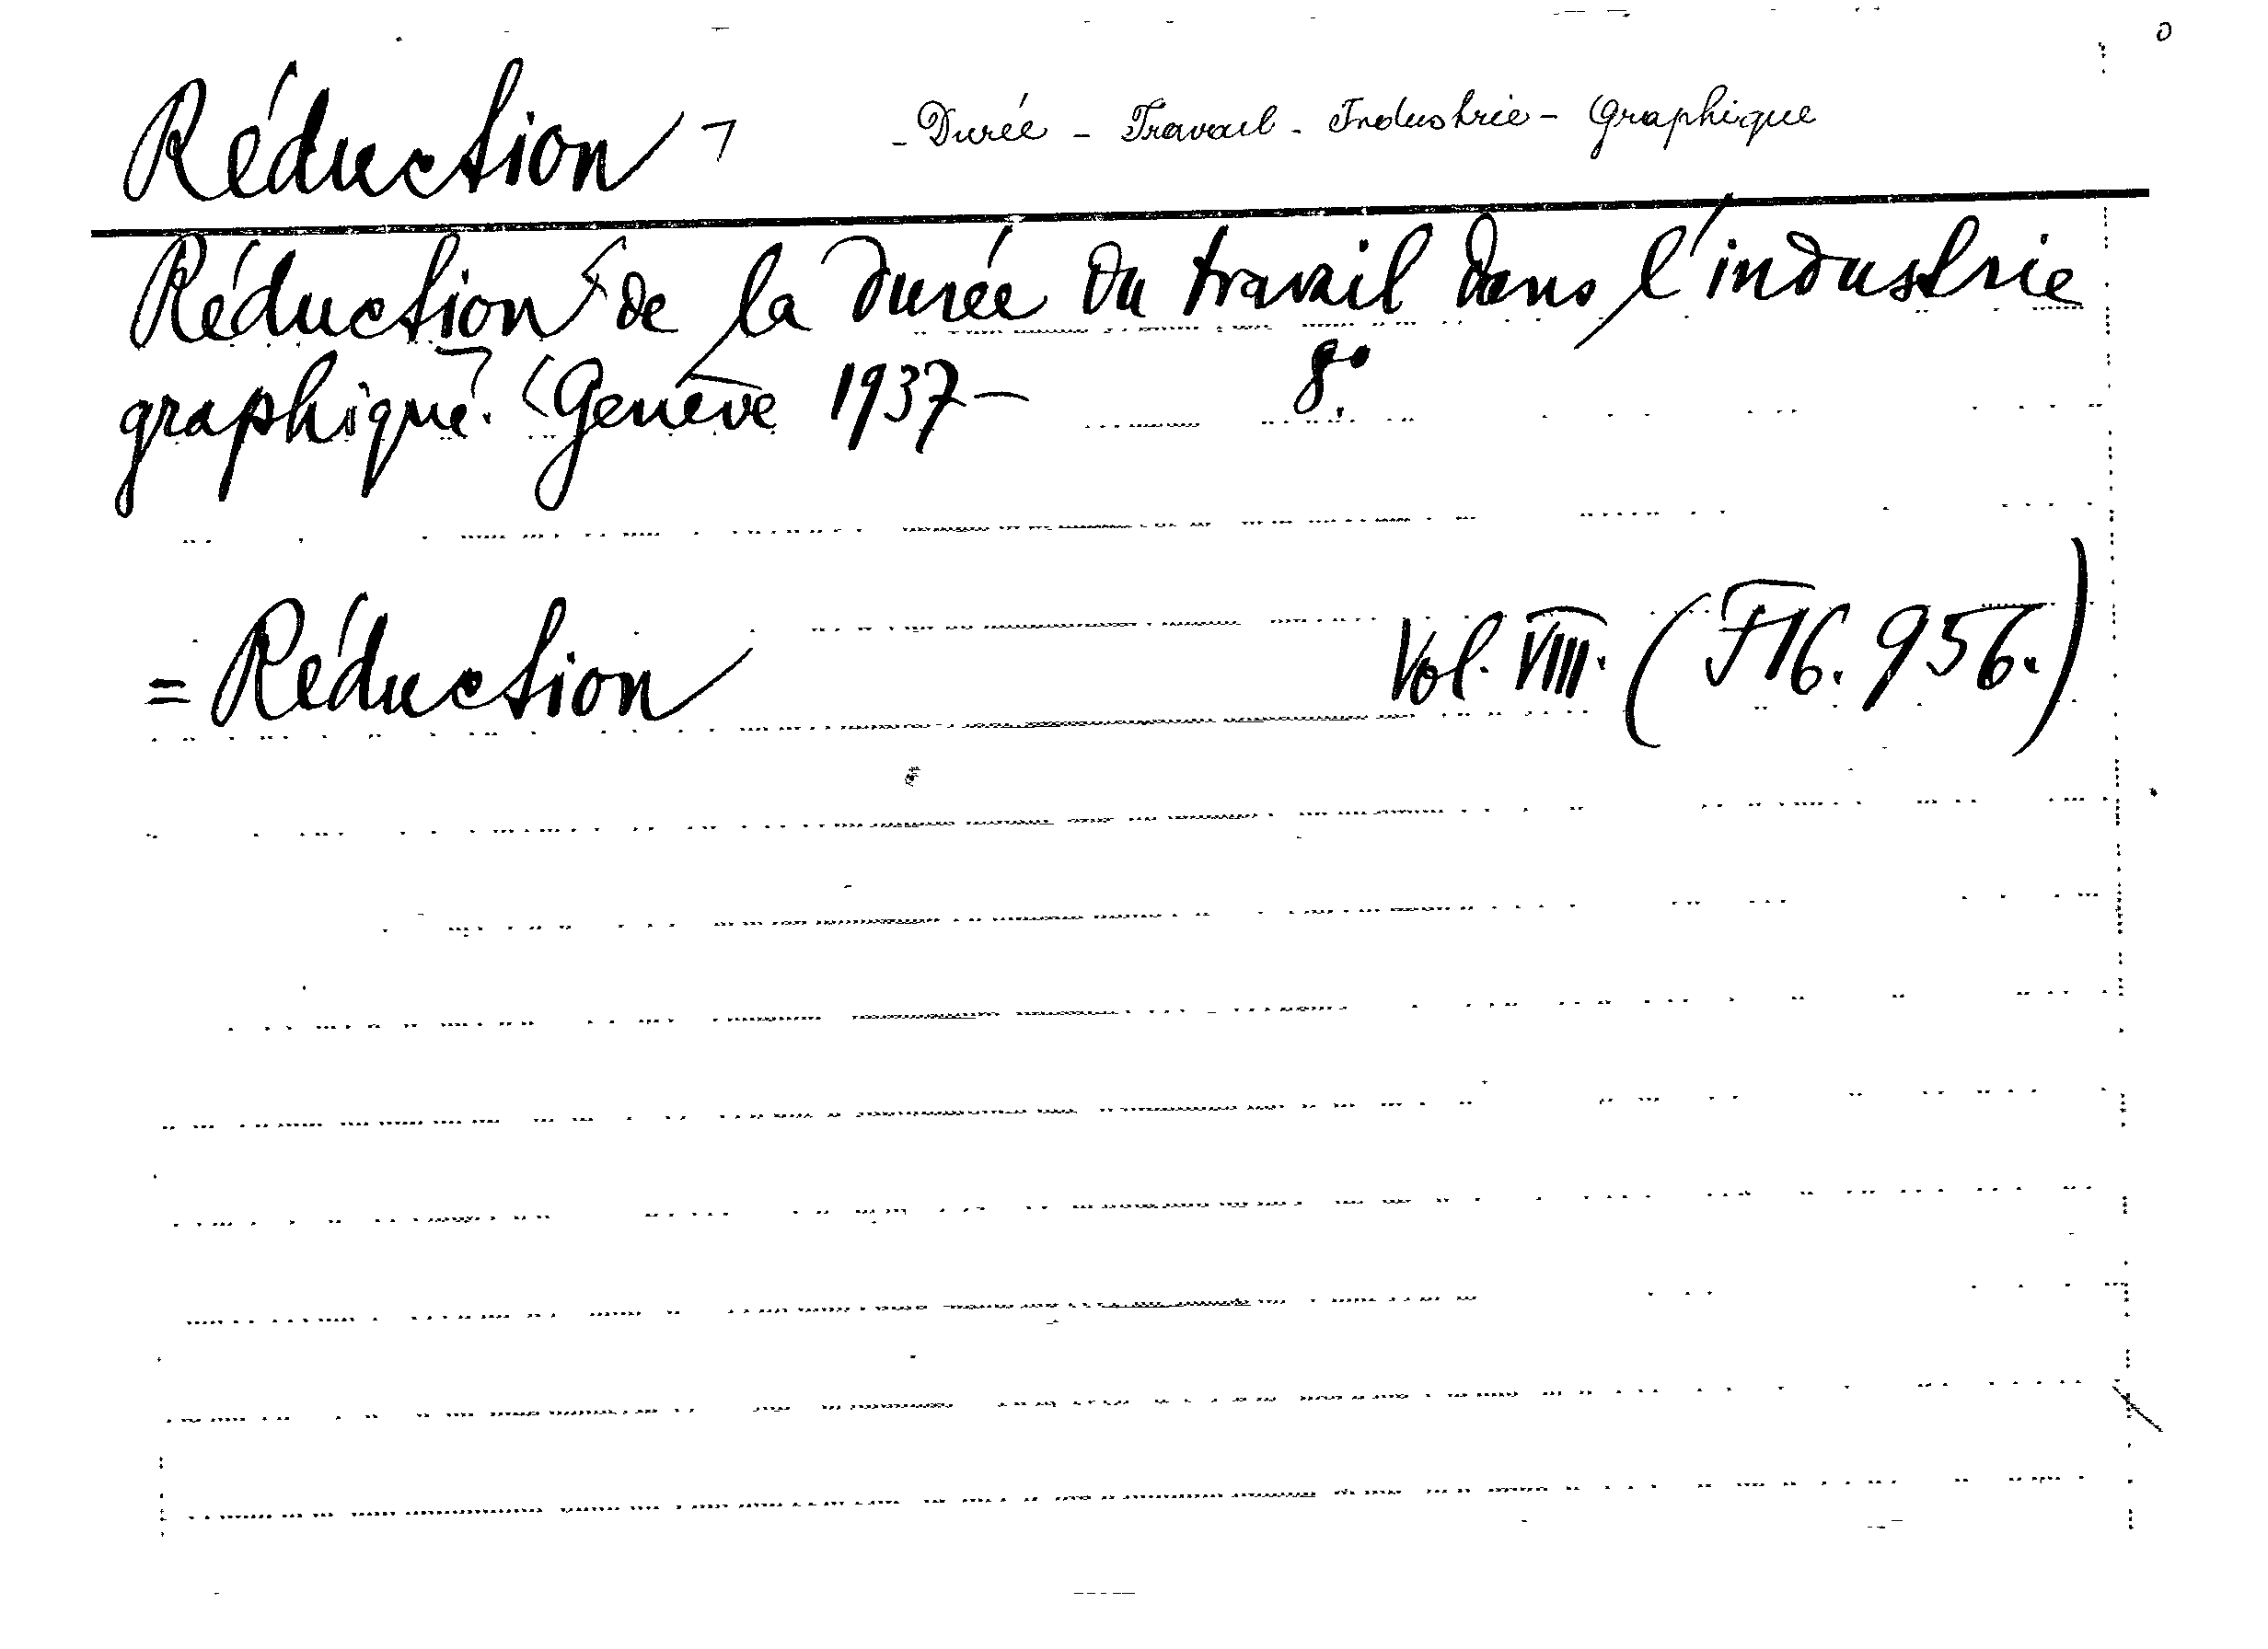 Réduction - Durée - Travail - Industrie - Graphique
Réduction de la durée du travail dans l'industrie
graphique. Genève 1937 - 8°.
= Réduction Vol. VIII. (F16.956.)